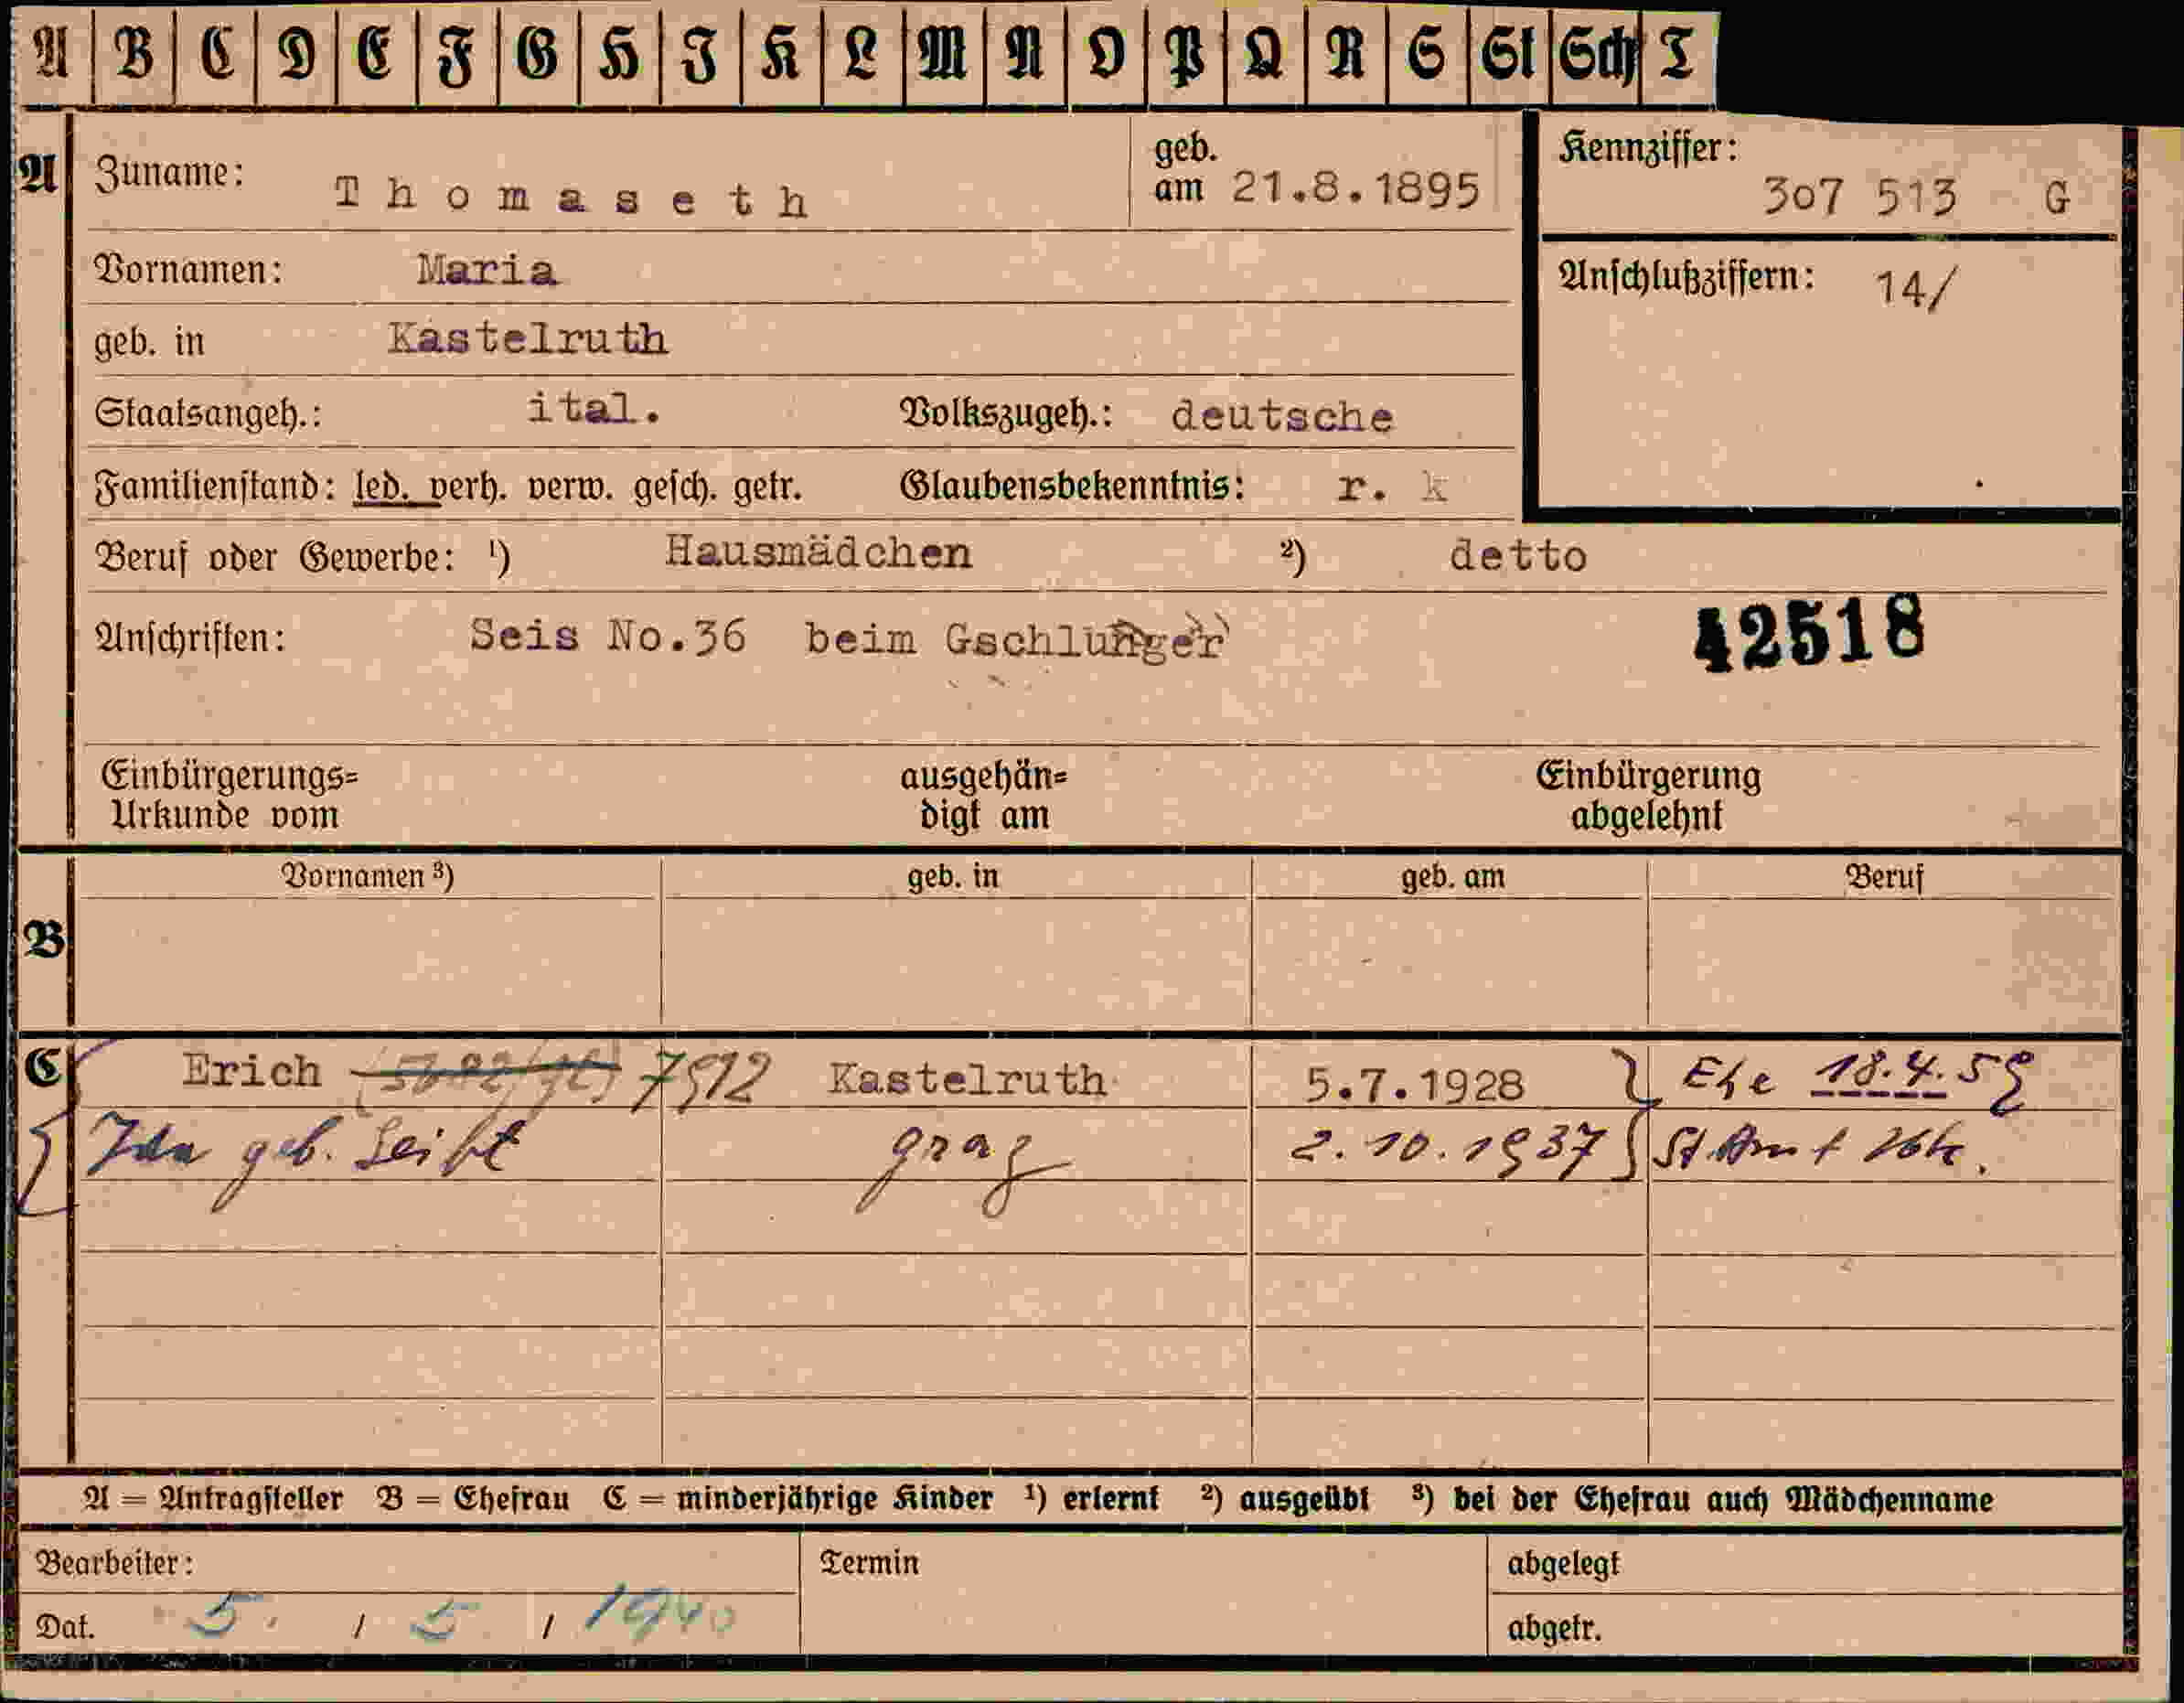 A B C D E F G H J K L M N O P Q R S St Sch T
A Zuname: Thomaseth geb. am 21.8.1895 Kennziffer: 307 513 G
Vornamen: Maria Anschlußziffern: 14/
geb. in Kastelruth
Staatsangeh.: ital. Volkszugeh.: deutsche
Familienstand: led. verh. verw. gesch. getr. Glaubensbekenntnis: r. k
Beruf oder Gewerbe: ¹) Hausmädchen ²) detto
Anschriften: Seis No.36 beim Gschlunger 42518
Einbürgerungs= ausgehän= Einbürgerung
Urkunde vom digt am abgelehnt
Vornamen ³) geb. in geb. am Beruf
B
C Erich 7512 Kastelruth 5.7.1928 Ehe 18.4.59
Ida geb. Seibt Graz 2.10.1937 St.Amt
A = Antragsteller B = Ehefrau C = minderjährige Kinder ¹) erlernt ²) ausgeübt ³) bei der Ehefrau auch Mädchenname
Bearbeiter: Termin abgelegt
Dat. 5. / 5 / 1940 abgetr.